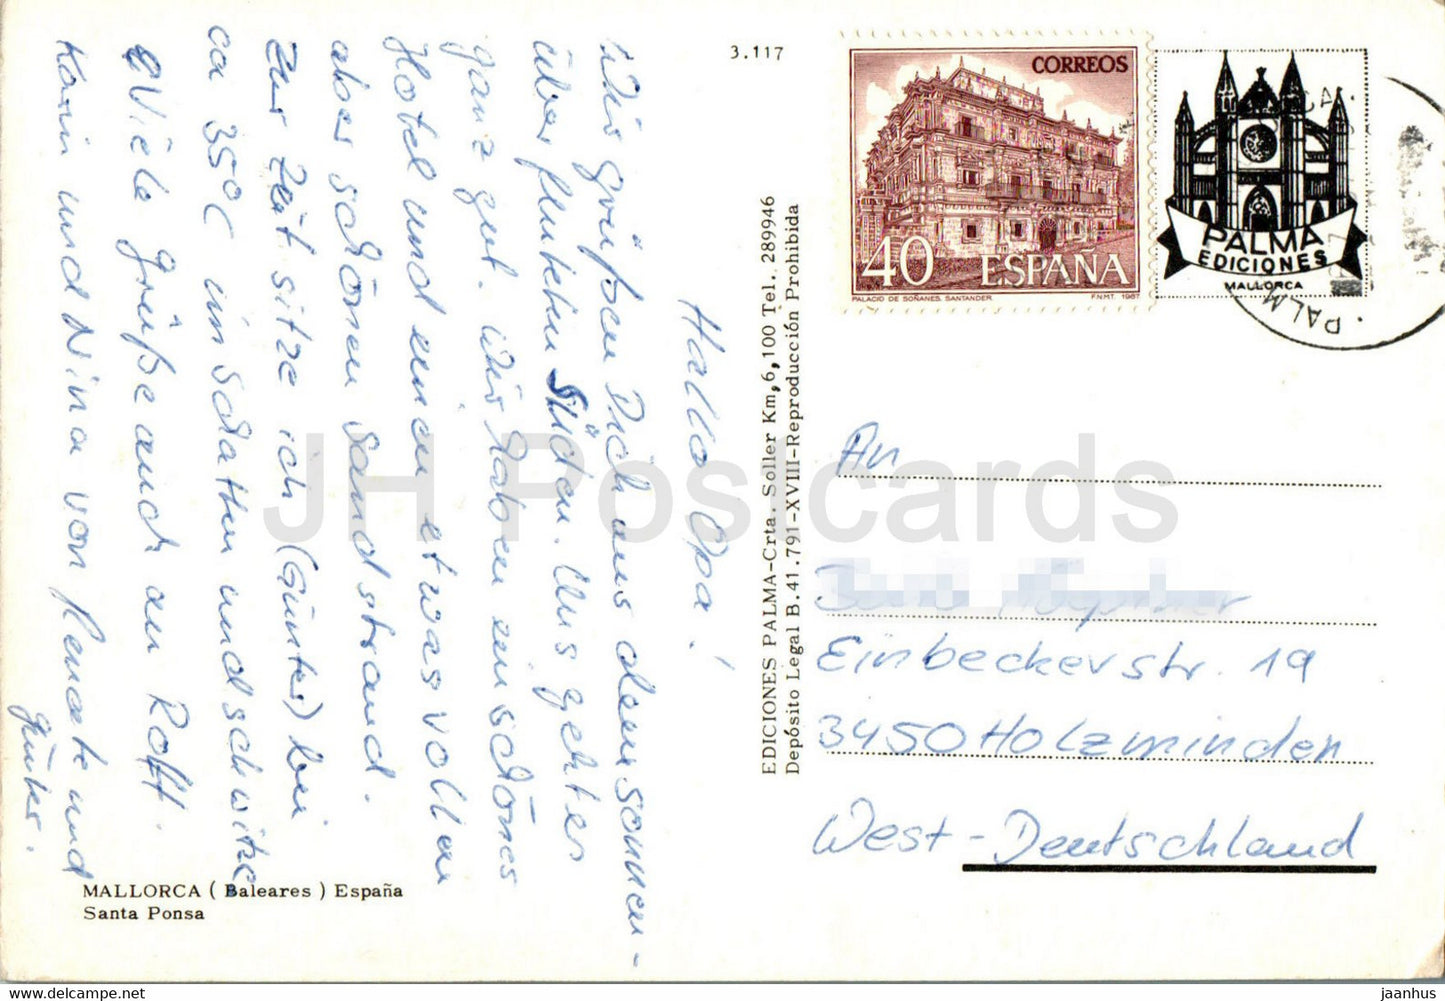 3.117
CORREOS
40 ESPAÑA
PALACIO DE SOÑANES. SANTANDER
F.N.M.T. 1987
PALMA
EDICIONES
MALLORCA
PALM
Hallo Opa!
Wir grüßen Dich aus dem sonnen-
überfluteten Süden. Uns geht es
ganz gut. Wir haben ein schönes
Hotel und einen etwas vollen
aber schönen Sandstrand.
Zur Zeit sitze ich (Günter) bei
ca 35°C im Schatten und schwitze
Viele Grüße auch an Rolf.
Karin und Nina von Renate und
Günter.
EDICIONES PALMA-Crta. Soller Km, 6,100 Tel. 289946
Depósito Legal B. 41.791-XVIII-Reproducción Prohibida
An
Einbeckerstr. 19
3450 Holzminden
West-Deutschland
MALLORCA ( Baleares ) España
Santa Ponsa
JH Postcards
www.delcampe.net
jaanhus